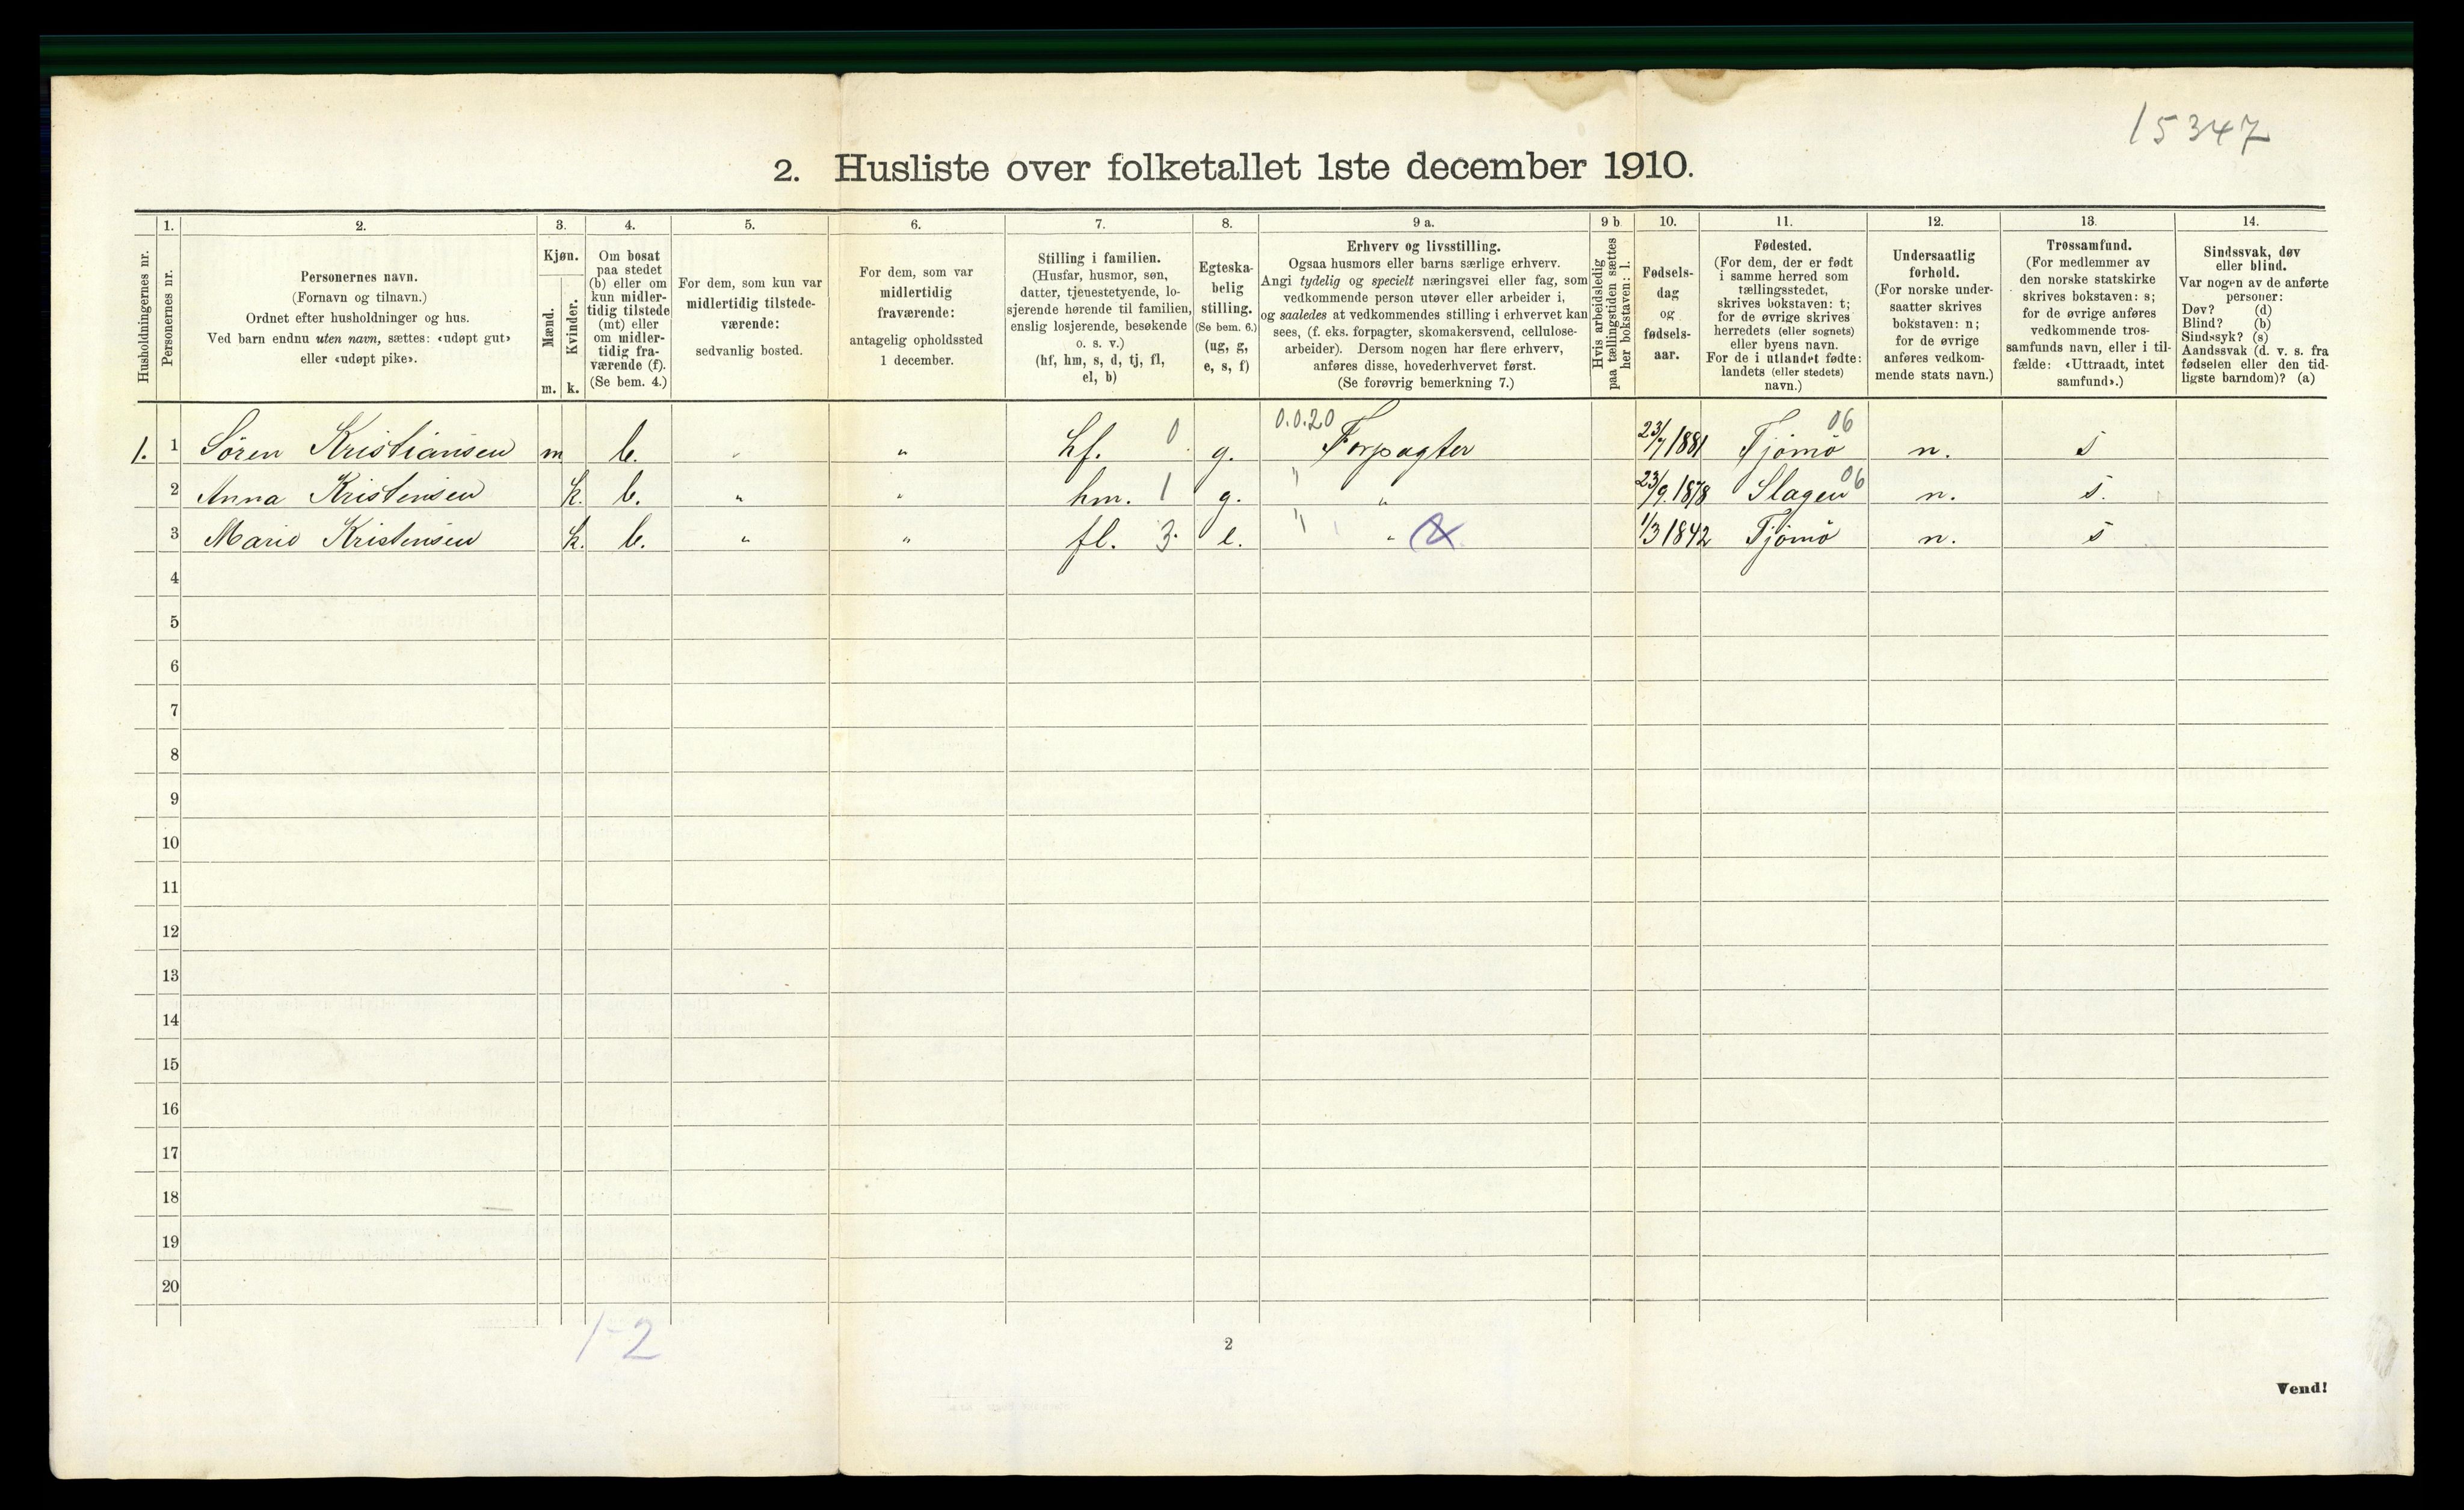 15347
2. Husliste over folketallet 1ste december 1910.
Husholdningernes nr.
1.
Personernes nr.
2.
Personernes navn.
(Fornavn og tilnavn.)
Ordnet efter husholdninger og hus.
Ved barn endnu uten navn, sættes: «udøpt gut»
eller «udøpt pike».
3.
Kjøn.
Mænd.
m.
Kvinder.
k.
4.
Om bosat
paa stedet
(b) eller om
kun midler-
tidig tilstede
(mt) eller
om midler-
tidig fra-
værende (f).
(Se bem. 4.)
5.
For dem, som kun var
midlertidig tilstede-
værende:
sedvanlig bosted.
6.
For dem, som var
midlertidig
fraværende:
antagelig opholdssted
1 december.
7.
Stilling i familien.
(Husfar, husmor, søn,
datter, tjenestetyende, lo-
sjerende hørende til familien,
enslig losjerende, besøkende
o. s. v.)
(hf, hm, s, d, tj, fl,
el, b)
8.
Egteska-
belig
stilling.
(Se bem. 6.)
(ug, g,
e, s, f)
9 a.
Erhverv og livsstilling.
Ogsaa husmors eller barns særlige erhverv.
Angi tydelig og specielt næringsvei eller fag, som
vedkommende person utøver eller arbeider i,
og saaledes at vedkommendes stilling i erhvervet kan
sees, (f. eks. forpagter, skomakersvend, cellulose-
arbeider). Dersom nogen har flere erhverv,
anføres disse, hovederhvervet først.
(Se forøvrig bemerkning 7.)
9 b
Hvis arbeidsledig
paa tællingstiden sættes
her bokstaven: l.
10.
Fødsels-
dag
og
fødsels-
aar.
11.
Fødested.
(For dem, der er født
i samme herred som
tællingsstedet,
skrives bokstaven: t;
for de øvrige skrives
herredets (eller sognets)
eller byens navn.
For de i utlandet fødte:
landets (eller stedets)
navn.)
12.
Undersaatlig
forhold.
(For norske under-
saatter skrives
bokstaven: n;
for de øvrige
anføres vedkom-
mende stats navn.)
13.
Trossamfund.
(For medlemmer av
den norske statskirke
skrives bokstaven: s;
for de øvrige anføres
vedkommende tros-
samfunds navn, eller i til-
fælde: «Uttraadt, intet
samfund».)
14.
Sindssvak, døv
eller blind.
Var nogen av de anførte
personer:
Døv? (d)
Blind? (b)
Sindssyk? (s)
Aandssvak (d. v. s. fra
fødselen eller den tid-
ligste barndom)? (a)
1. 1 Søren Kristiansen m b. " " hf. 0 g. 0.0.20 Forpagter 23/7 1881 Tjømø 06 n. s
2 Anna Kristensen k. b. " " hm. 1 g. " " 23/9. 1878 Slagen 06 n. s.
3 Marie Kristensen k. b. " " fl. 3. e. " " 1/3 1842 Tjømø n. s
4
5
6
7
8
9
10
11
12
13
14
15
16
17
18
19
20
1-2
2
Vend!